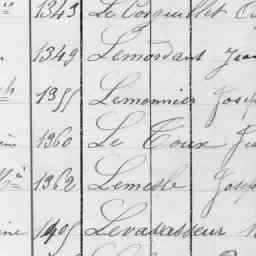 1343 Le Corguillet
1349 Lemordant Jean
1355 Lemonnier Josep
1360 Le Toux
1362 Lemesle Josep
1405 Levavasseur